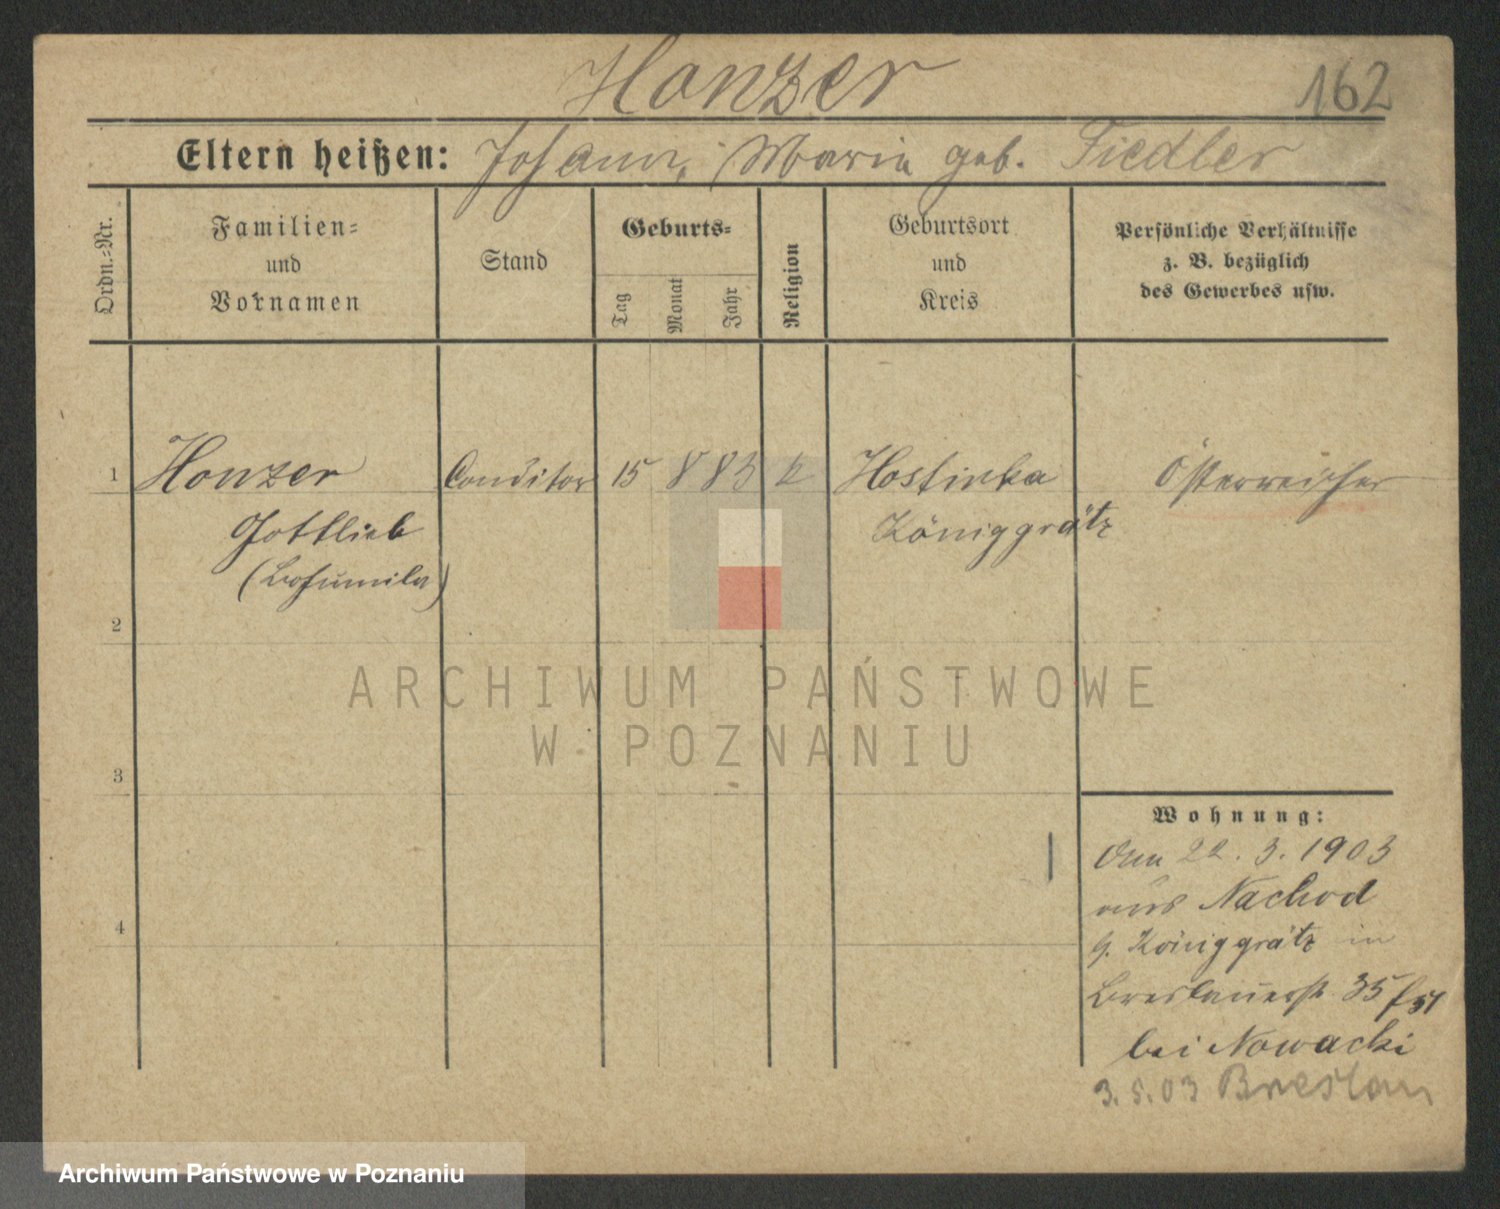 Honzer
162
Eltern heißen: Johann, Maria geb. Fiedler
Ordn.-Nr.
Familien-
und
Vornamen
Stand
Geburts-
Tag
Monat
Jahr
Religion
Geburtsort
und
Kreis
Persönliche Verhältnisse
z. B. bezüglich
des Gewerbes usw.
1 Honzer Conditor 15 8 83 k Hostinka Österreicher
Gottlieb Königgrätz
(Bohumila)
2
ARCHIWUM PAŃSTWOWE
W POZNANIU
3
4
Wohnung:
Den 22. 3. 1903
aus Nachod
g. Königgrätz in
Breslauerst. 35
bei Nowacki
3.5.03 Breslau
Archiwum Państwowe w Poznaniu